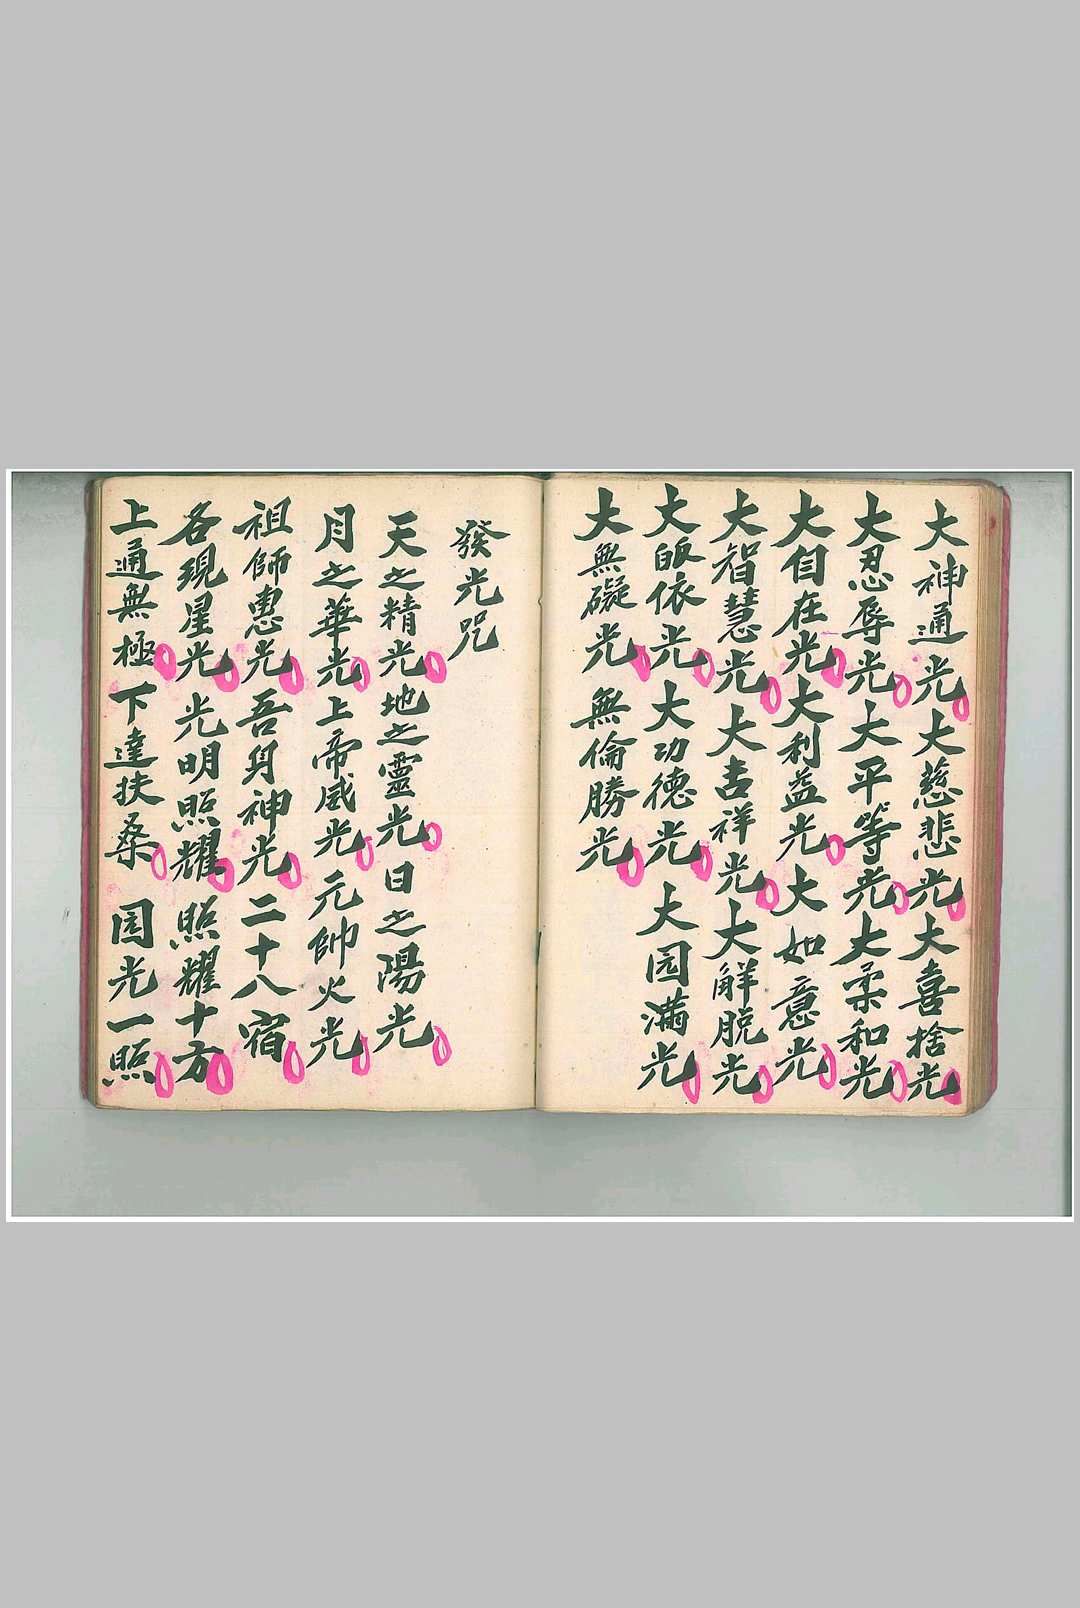 大神通光大慈悲光大喜捨光
大忍辱光大平等光大柔和光
大自在光大利益光大如意光
大智慧光大吉祥光大解脱光
大皈依光大功德光大园滿光
大無礙光無倫勝光
發光咒
天之精光地之靈光日之陽光
月之華光上帝威光元帥火光
祖師惠光吾身神光二十八宿
各現星光光明照耀照耀十方
上通無極下達扶桑园光一照